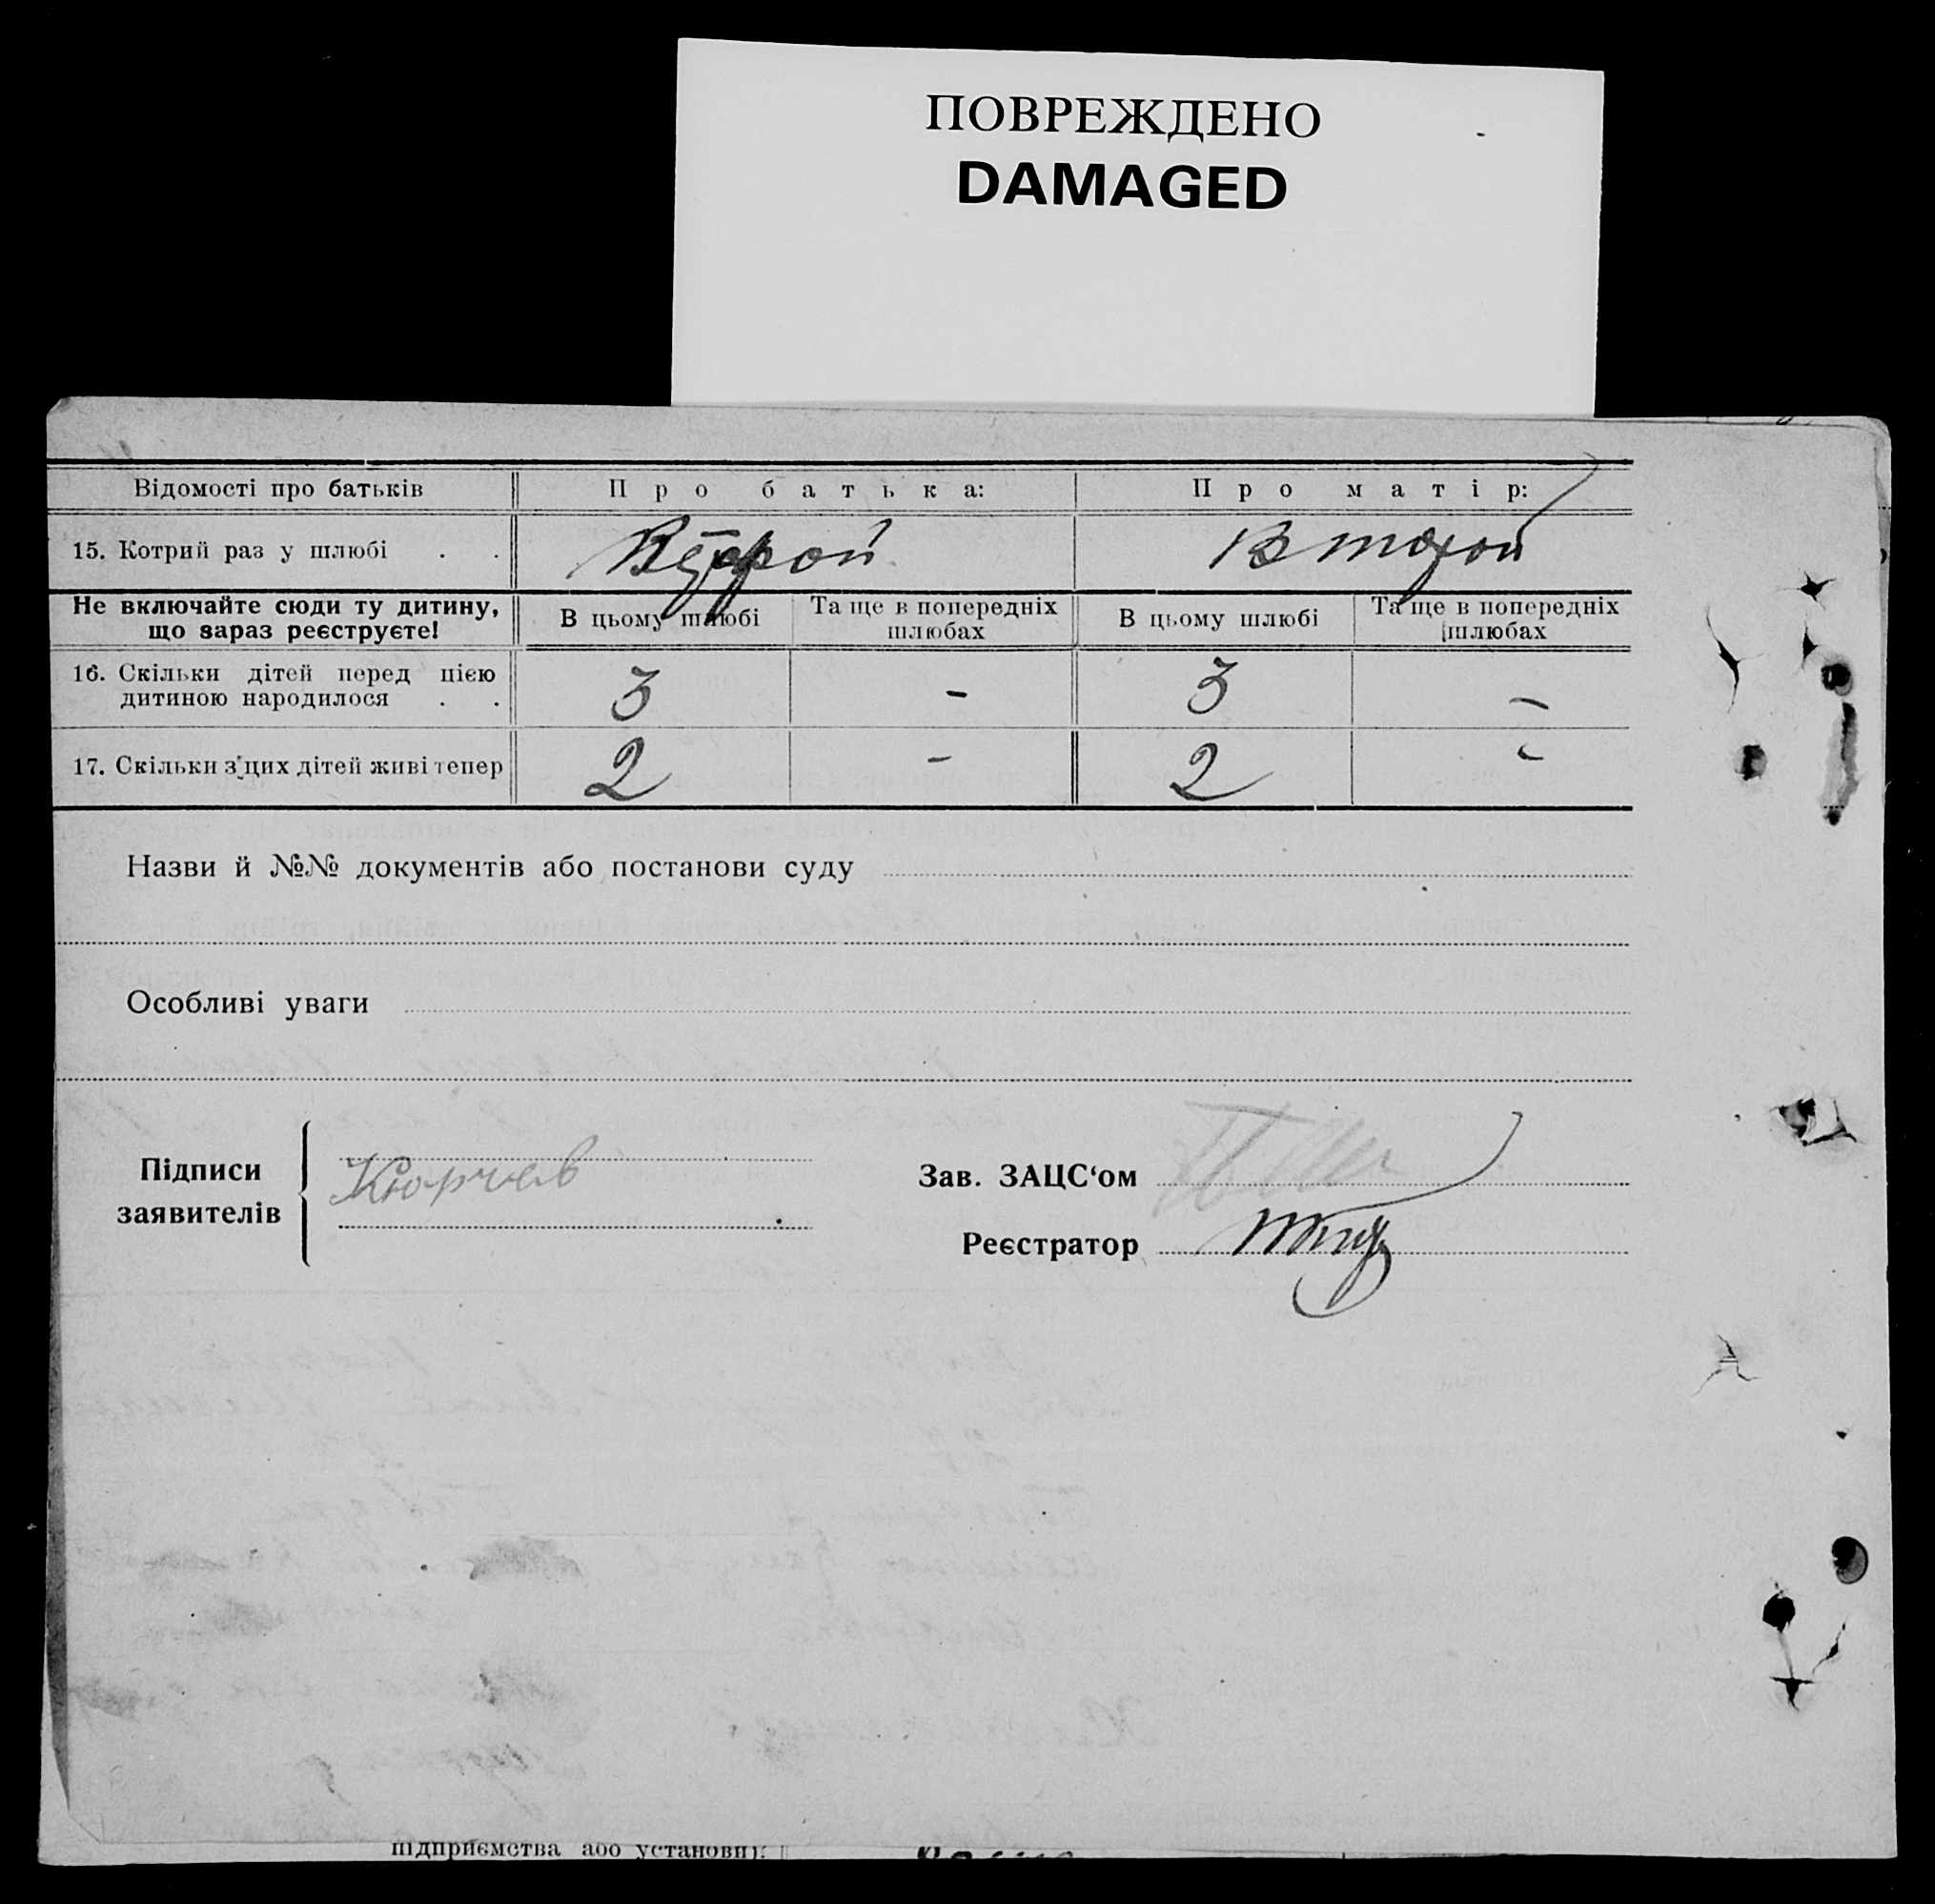 ПОВРЕЖДЕНО
DAMAGED
Відомості про батьків Про батька: Про матір:
15. Котрий раз у шлюбі . . Второй Второй
Не включайте сюди ту дитину, що зараз реєструєте! В цьому шлюбі Та ще в попередніх шлюбах В цьому шлюбі Та ще в попередніх шлюбах
16. Скільки дітей перед цією дитиною народилося . . 3 - 3 -
17. Скільки з цих дітей живі тепер 2 - 2 -
Назви й №№ документів або постанови суду
Особливі уваги
Підписи заявителів Кюрчев
Зав. ЗАЦС‘ом
Реєстратор
підприємства або установи):